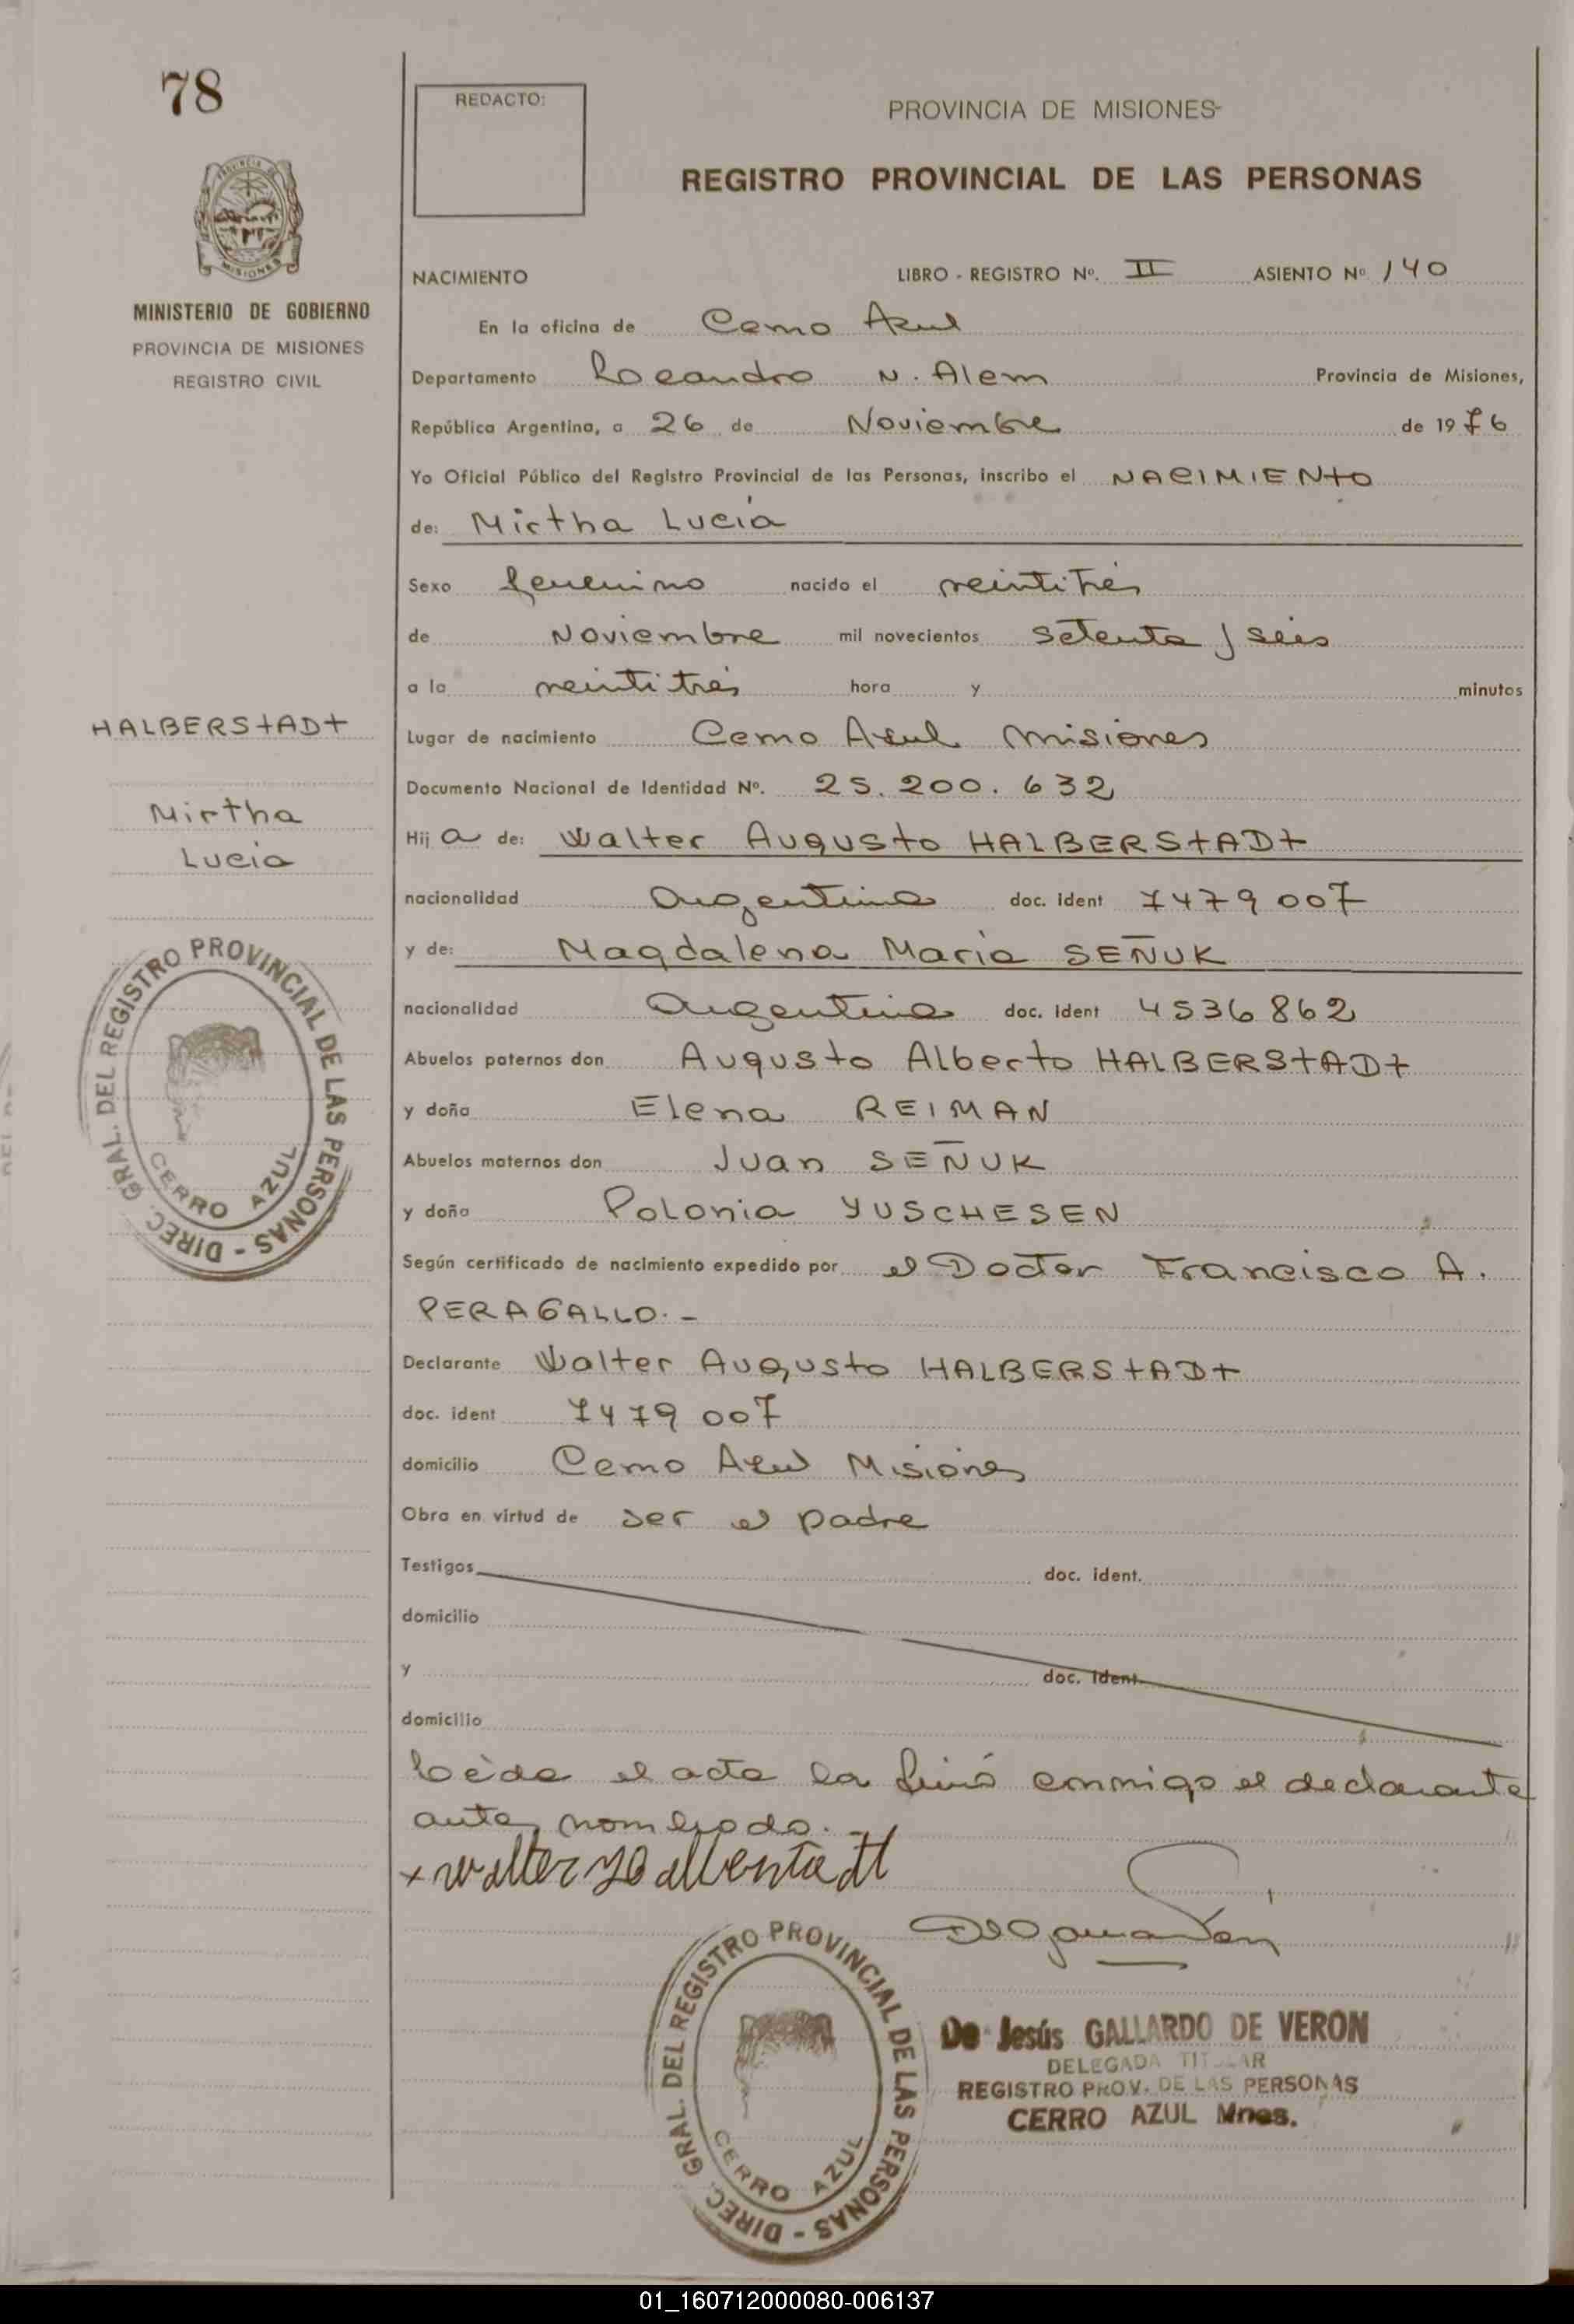 78
REDACTO:
PROVINCIA DE MISIONES
REGISTRO PROVINCIAL DE LAS PERSONAS
MISIONES
MINISTERIO DE GOBIERNO
PROVINCIA DE MISIONES
REGISTRO CIVIL
NACIMIENTO LIBRO - REGISTRO Nº. II ASIENTO Nº 140
En la oficina de Cerro Azul
Departamento Leandro N. Alem Provincia de Misiones,
República Argentina, a 26 de Noviembre de 1976
Yo Oficial Público del Registro Provincial de las Personas, inscribo el NACIMIENTO
de: Mirtha Lucía
Sexo femenino nacido el veintitrés
de Noviembre mil novecientos setenta y seis
a la veintitrés hora y minutos
HALBERSTADT
Mirtha
Lucia
Lugar de nacimiento Cerro Azul Misiones
Documento Nacional de Identidad Nº. 25.200.632
Hija de: Walter Augusto HALBERSTADT
nacionalidad Argentina doc. ident 7479007
y de: Magdalena María SEÑUK
nacionalidad Argentina doc. ident 4536862
Abuelos paternos don Augusto Alberto HALBERSTADT
y doña Elena REIMAN
Abuelos maternos don Juan SEÑUK
y doña Polonia YUSCHESEN
Según certificado de nacimiento expedido por el Doctor Francisco A.
PERAGALLO.-
Declarante Walter Augusto HALBERSTADT
doc. ident 7479007
domicilio Cerro Azul Misiones
Obra en virtud de ser el padre
Testigos doc. ident.
domicilio
y doc. ident.
domicilio
Leída el acta la firmó conmigo el declarante
antes nombrado.-
DIREC. GRAL. DEL REGISTRO PROVINCIAL DE LAS PERSONAS -
CERRO AZUL
x Walter
DIREC. GRAL. DEL REGISTRO PROVINCIAL DE LAS PERSONAS -
CERRO AZUL
De Jesús GALLARDO DE VERON
DELEGADA TITULAR
REGISTRO PROV. DE LAS PERSONAS
CERRO AZUL Mnes.
01_160712000080-006137